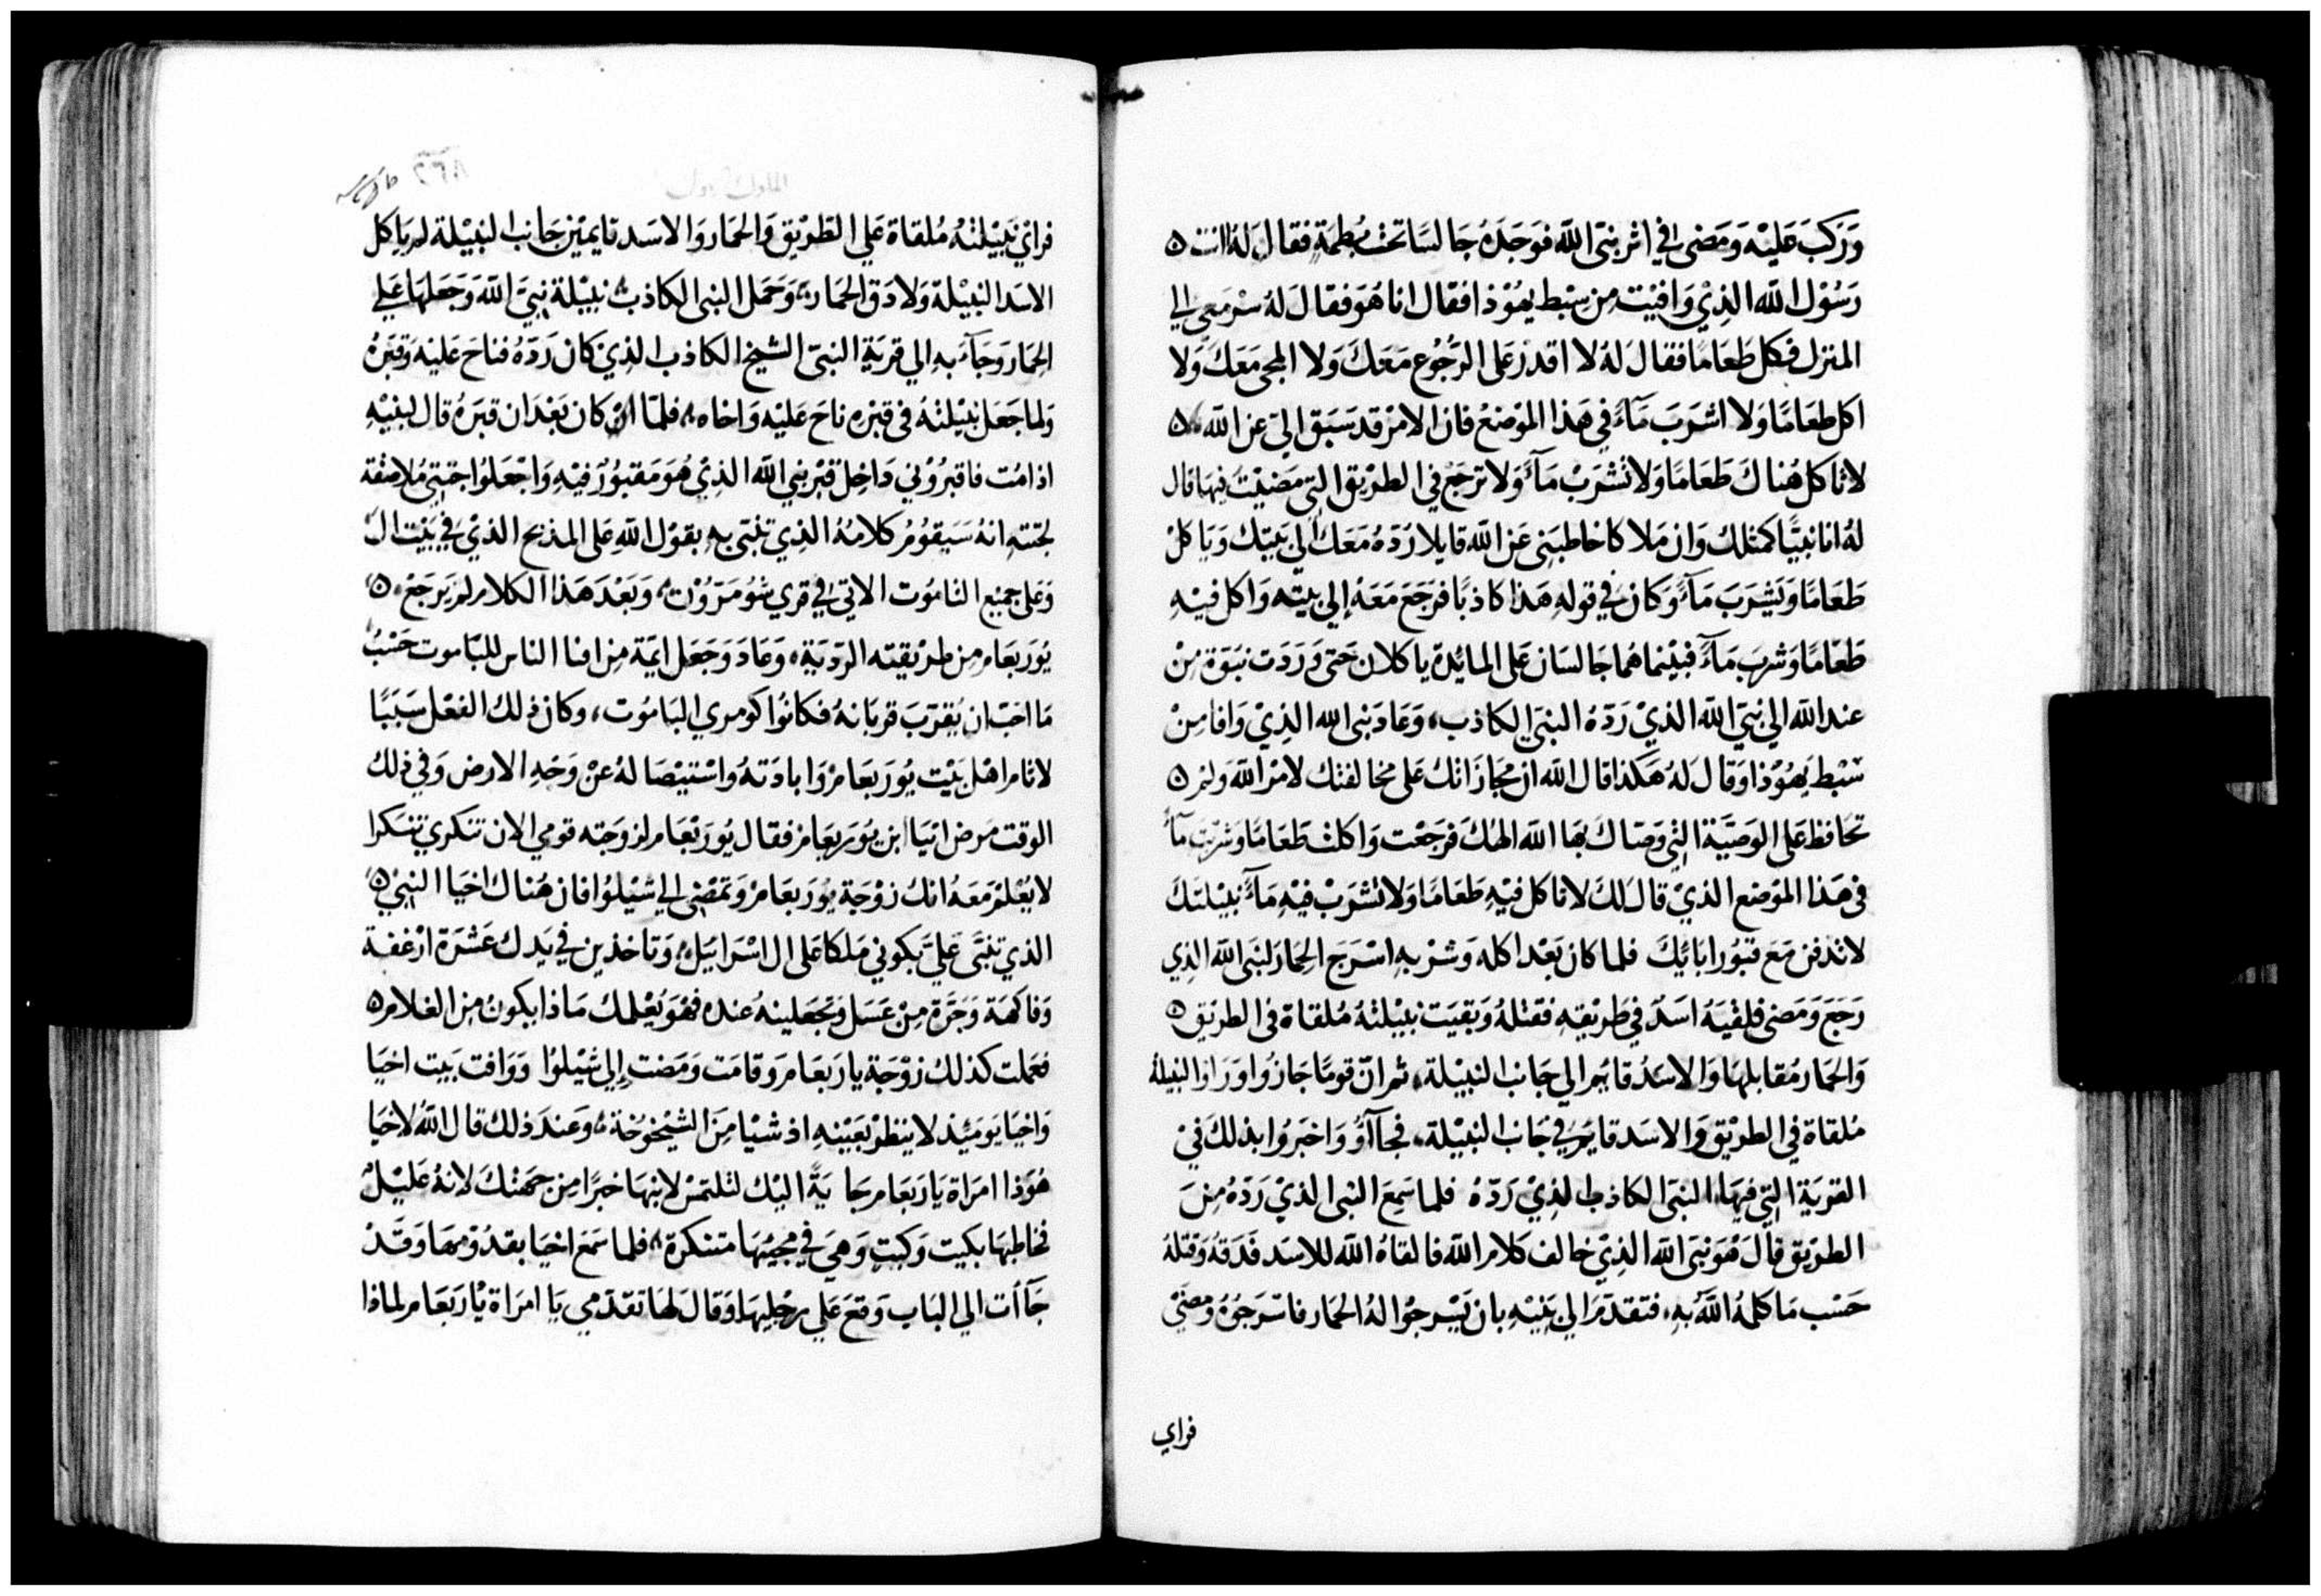 وَرَكبَ عَليْه وَمَضى في اثر نبيّ اللّه فوَجَدَهُ جَالسًا تحت بُطمَةٍ فقال لَهُ انت
رَسُوْل اللّه الذِيْ وَافيْت مِن سِبْط يهُوْذا فقال انا هُوَ فقال لهُ سْر مَعي الي
المنزل فكل طَعَامًا فقال لهُ لا اقدرْ عَلى الرُّجُوْع مَعَكَ وَلا المجى مَعَكَ وَلا
اكل طعَامًا وَلا اشرَبَ مَآءً في هَذا الموْضعْ فان الامرْ قد سَبَق اليّ عن اللّه
لا تاكل هُناكَ طَعَامًا وَلا تشْرَبْ مَآءً وَلا ترجَعْ في الطرْيق التي مَضيْت فيهَا قال
لهُ انا نبيًّا كمثلك وَان مَلاكا خاطبَنِي عَن اللّه قايلا رَدّهُ مَعَكَ الي بَيتك وَيَاكل
طَعَامًا وَيَشرَبَ مَآءً وَكان في قولهِ هَذا كاذبًا فرَجَعَ مَعَهُ إلي بيته وَاكل فيْهِ
طَعَامًا وَشربَ مَآءً فبيْنما هُما جَالسَان عَلى المائِدة ياكلان حَتى وَرَدَت نبَوّة مِنْ
عند اللّه الي نبيّ اللّه الذيْ رَدّهُ النبيّ الكاذب، وَعَادَ نبى الله الذِيْ وَافا مِنْ
سْبْط يَهُوْذا وَقال لهُ هَكذا قال اللّه ان مجَازَاتك عَلى مخالفتك لامْر اللّه وَلم
تحَافظ عَلى الوَصيَّة التي وَصّاكَ بهَا اللّه الهكَ فرَجَعْت وَاكلت طَعَامًا وَشربْت مآءً
في هَذا الموْضع الذيْ قالَ لكَ لا تاكل فيْهِ طَعَامًا وَلا تشرَبْ فيْهِ مَآءً نبيْلتكَ
لا تدفن مَعَ قبُور ابَائيكَ فلما كان بَعْد اكله وَشرْبهِ اسْرَج الحِمَار لنبَى اللّه الذِي
رَجَعَ وَمَضى فلقيَهُ اسَدٌ في طريْقهِ فقتلهُ وَبقيَت نبيْلتهُ مُلقاة في الطريق
وَالحمَار مُقابلهَا وَالاسَدُ قايم الي جَانب النبيْلة، ثم انّ قومًا جَازُوا وَرَاوا النبيلة
مُلقاة في الطريْق وَالاسَد قايم في جَانب النبيْلة، فجَآاؤُ وَاخبَروُا بذلكَ في
القريَة التي فيهَا النبيَ الكاذب الذِيْ رَدّهُ فلما سَمِعَ النبى الذيْ رَدّهُ مِنَ
الطريق قالَ هُوَ نبيَ اللّه الذِيْ خالف كلام اللّه فالقاهُ اللّه للاسَد فدَقهُ وَقتلهُ
حَسْب مَا كلمهُ اللّهُ بهِ، فتقدّمَ الي بَنيْهِ بان يَسْرجُوا لهُ الحمَار فاسْرَجوُهُ وَمضيَ
فراي
الملوك الاول
٢٦٨
فراي نبيْلتهُ مُلقاة عَلي الطريْق وَالحمَار وَالاسَد قايميْن جَانب النبيْلة لم ياكل
الاسَد النبيْلة وَلا دَق الحمَار، وَحَمل النبى الكاذب نبيْلة نبيَّ اللّه وَجَعلهَا عَلي
الحِمَار وَجَآءَ بهِ الي قريَة النبيّ الشيخ الكاذب الذيَ كان رَدّهُ فناحَ عَليْه وَقبَرهُ
وَلما جَعَل نبيْلتهُ في قبْرهِ ناحَ عَليْه وَاخاه، فلمّا ان كان بَعْد ان قبَرهُ قال لبنيْهِ
اذا مُت فاقبرُوْني دَاخِل قبْر نبي اللّه الذِيْ هُوَ مَقبُوْر فيْهِ وَاجْعَلوُا جثتي مُلاصقة
لجثتهِ انهُ سَيَقوُمُ كلامُهُ الذِي تنبَى بهِ بقوْل اللّهِ عَلى المذبح الذيْ في بَيْت ال
وَعَلي جميْع الناموُت الاتي في قري شوُمَرَوُن، وَبَعْد هَذا الكلام لم يَرجَعْ
يوُرَبعَام مِن طريْقته الرّديَة، وَعَادَ وَجَعَل ايمّة مِن افنا الناس للبّاموت حَسْبُ
مَا احَبّ ان يُقرّبَ قربَانهُ فكانوُا كومري البَاموُت، وكان ذلك الفعْل سَببًا
لاثام اهْل بَيْت يوُرَبعَام وَابادَتهُ وَاسْتيْصَالهُ عنْ وَجْهِ الارض وَفي ذلك
الوقت مَرض ابيَا ابن يوُرَبعَام فقال يوُرَبْعَام لزوَجته قومي الان تنكري تنسكرا
لا يُعْلمْ مَعَهُ انك زوْجَة يوُرَبعَام وَتمْضي الي شيْلوُا فان هُناك اخيَا النبيْ
الذي تنبَّى عَليَّ بكوني مَلكا عَلى ال اسْرَائيَل، وَتاخذين في يَدك عَشرَة ارْغفة
وَفاكهَة وَجَرّة مِنْ عَسَل وَتجْعَلينهُ عنده فهْوَ يُعْلمك مَاذا يكوُن مِن الغلام
فعَملت كذلك زوْجَة يارَبعَام وَقامَت وَمَضت إلي شيْلوُا وَوَافت بَيت اخيَا
وَاخيَا يَومَئيذ لا ينظرْ بعَيْنيهِ اذ شيْئا مِنَ الشيْخوُخة، وَعند ذلك قال اللّهُ لاخيَا
هُوَذا امرَاة يَارَبَعَام جَايَةً اليْك لتلتمسْ لابنهَا خبرًا مِن جهَتك لانهُ عَليْلْ
فخاطبهَا بكيت وَكيتٍ وَهيَ في مجيْهَا متنكرة، فلما سَمَعَ اخيَا بقدُوْمهَا وَقدْ
جَآات الي البَاب وَقعَ عَلي رجْليهَا وَقالَ لهَا تقدّمي يَا امرَاة يَارَبعَام لماذا